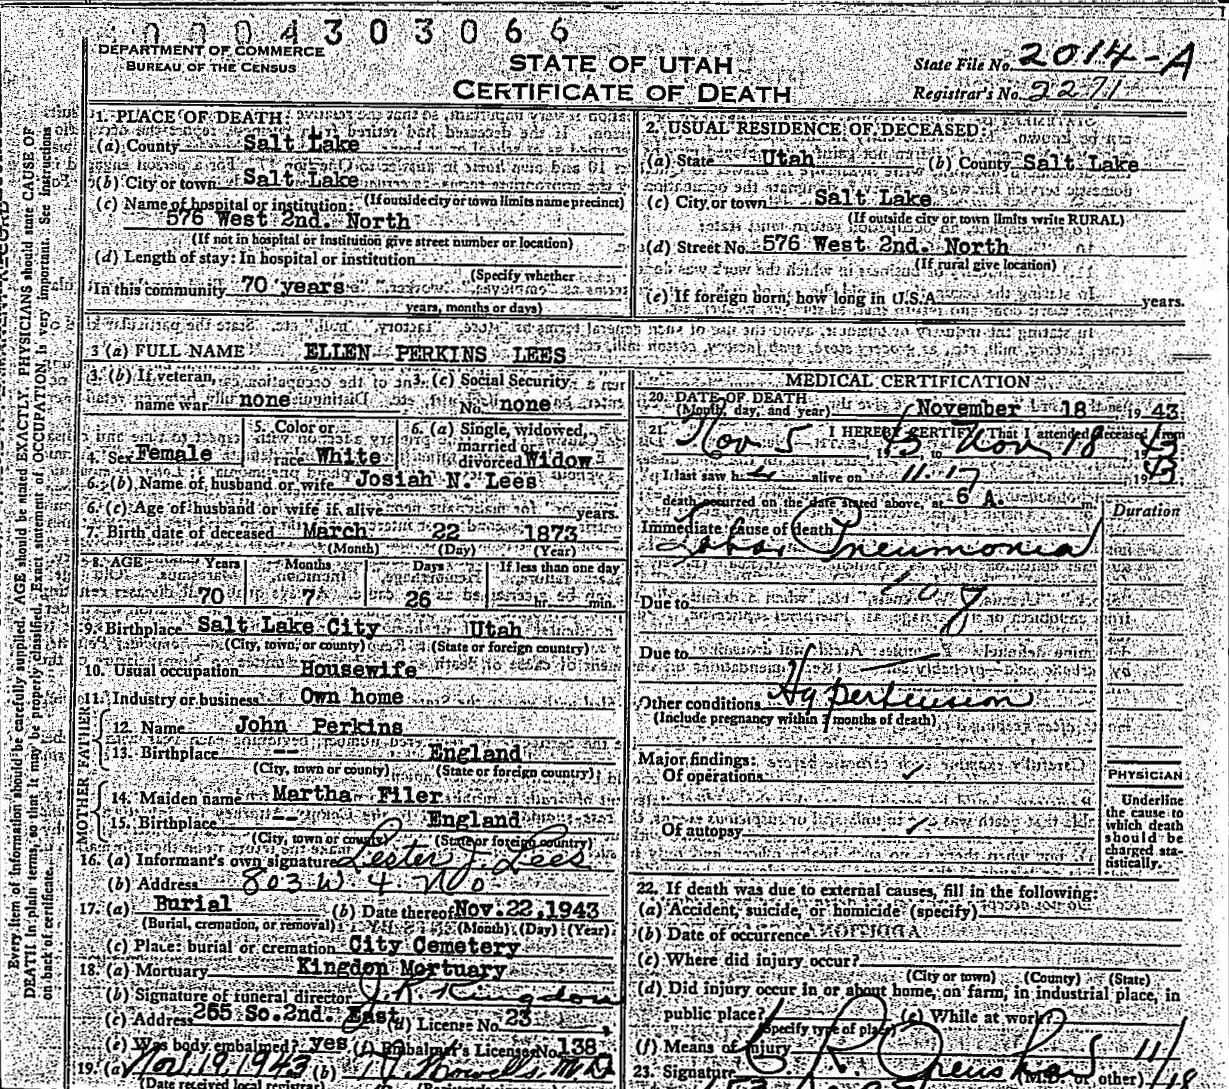 0004303066
DEPARTMENT OF COMMERCE
BUREAU OF THE CENSUS
STATE OF UTAH
CERTIFICATE OF DEATH
State File No. 2014-A
Registrar's No. 2271
Every item of information should be carefully supplied. AGE should be stated EXACTLY. PHYSICIANS should state CAUSE OF
DEATH in plain terms, so that it may be properly classified. Exact statement of OCCUPATION is very important. See Instructions
on back of certificate.
1. PLACE OF DEATH:
(a) County Salt Lake
(b) City or town Salt Lake
(If outside city or town limits name precinct)
(c) Name of hospital or institution:
576 West 2nd. North
(If not in hospital or institution give street number or location)
(d) Length of stay: In hospital or institution
(Specify whether
In this community 70 years
years, months or days)
2. USUAL RESIDENCE OF DECEASED:
(a) State Utah (b) County Salt Lake
(c) City or town Salt Lake
(If outside city or town limits write RURAL)
(d) Street No. 576 West 2nd. North
(If rural give location)
(e) If foreign born, how long in U.S.A. years.
3 (a) FULL NAME ELLEN PERKINS LEES
3. (b) If veteran,
name war none
3. (c) Social Security
No. none
4. Sex Female
5. Color or
race White
6. (a) Single, widowed,
married or
divorced Widow
6. (b) Name of husband or wife Josiah N. Lees
6. (c) Age of husband or wife if alive years.
7. Birth date of deceased March 22 1873
(Month) (Day) (Year)
8. AGE Years Months Days If less than one day
70 7 26 hr. min.
9. Birthplace Salt Lake City Utah
(City, town, or county) (State or foreign country)
10. Usual occupation Housewife
11. Industry or business Own home
FATHER
12. Name John Perkins
13. Birthplace -- England
(City, town or county) (State or foreign country)
MOTHER
14. Maiden name Martha Filer
15. Birthplace -- England
(City, town or county) (State or foreign country)
16. (a) Informant's own signature Lester J. Lees
(b) Address 803 W. 4. No
17. (a) Burial (b) Date thereof Nov. 22, 1943
(Burial, cremation, or removal) (Month) (Day) (Year)
(c) Place: burial or cremation City Cemetery
18. (a) Mortuary Kingdon Mortuary
(b) Signature of funeral director J. R. Kingdon
(c) Address 255 So. 2nd. East (d) License No. 23
(e) Was body embalmed? yes (f) Embalmer's License No. 138
19. (a) Nov. 19, 1943 (b) M.D.
(Date received local registrar)
MEDICAL CERTIFICATION
20. DATE OF DEATH
(Month, day, and year) November 18 1943
21. I HEREBY CERTIFY That I attended deceased from
Nov 5 1943 to Nov 18 1943
I last saw h alive on 11-17 1943
death occurred on the date stated above, at 6 A. m.
Duration
Immediate cause of death
Lobar Pneumonia
Due to
Due to
Other conditions Hypertension
(Include pregnancy within 3 months of death)
Major findings:
Of operations
Of autopsy
PHYSICIAN
Underline
the cause to
which death
should be
charged sta-
tistically.
22. If death was due to external causes, fill in the following:
(a) Accident, suicide, or homicide (specify)
(b) Date of occurrence
(c) Where did injury occur?
(City or town) (County) (State)
(d) Did injury occur in or about home, on farm, in industrial place, in
public place? (e) While at work?
(Specify type of place)
(f) Means of injury
23. Signature (M.D. or other)